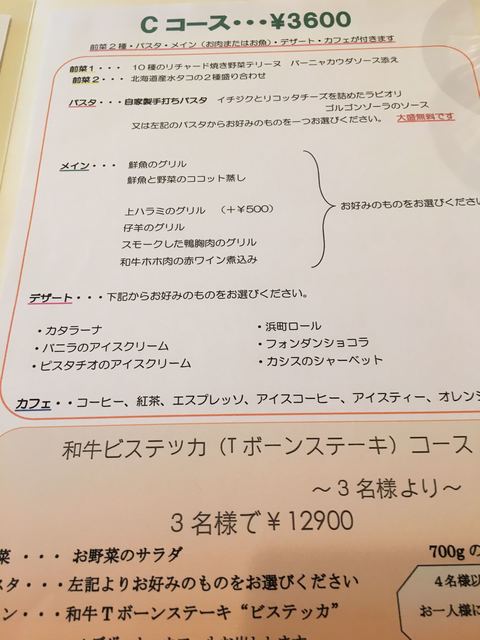 Cコース・・・¥3600
前菜2種・パスタ・メイン（お肉またはお魚）・デザート・カフェが付きます
前菜1・・・ 10種のリチャード焼き野菜テリーヌ バーニャカウダソース添え
前菜2・・・ 北海道産水タコの2種盛り合わせ
パスタ・・・自家製手打ちパスタ イチジクとリコッタチーズを詰めたラビオリ
ゴルゴンゾーラのソース
又は左記のパスタからお好みのものを一つお選びください。 大盛無料です
メイン・・・ 鮮魚のグリル
鮮魚と野菜のココット蒸し
上ハラミのグリル （＋¥500）
仔羊のグリル
スモークした鴨胸肉のグリル
和牛ホホ肉の赤ワイン煮込み
お好みのものをお選びくださ
デザート・・・下記からお好みのものをお選びください。
・カタラーナ
・バニラのアイスクリーム
・ピスタチオのアイスクリーム
・浜町ロール
・フォンダンショコラ
・カシスのシャーベット
カフェ・・コーヒー、紅茶、エスプレッソ、アイスコーヒー、アイスティー、オレン
和牛ビステッカ（Tボーンステーキ）コース
～3名様より～
3名様で¥12900
菜・・・お野菜のサラダ
スタ・・・左記よりお好みのものをお選びください
ン・・・和牛Tボーンステーキ“ビステッカ”
700gの
4名様以
お一人様に